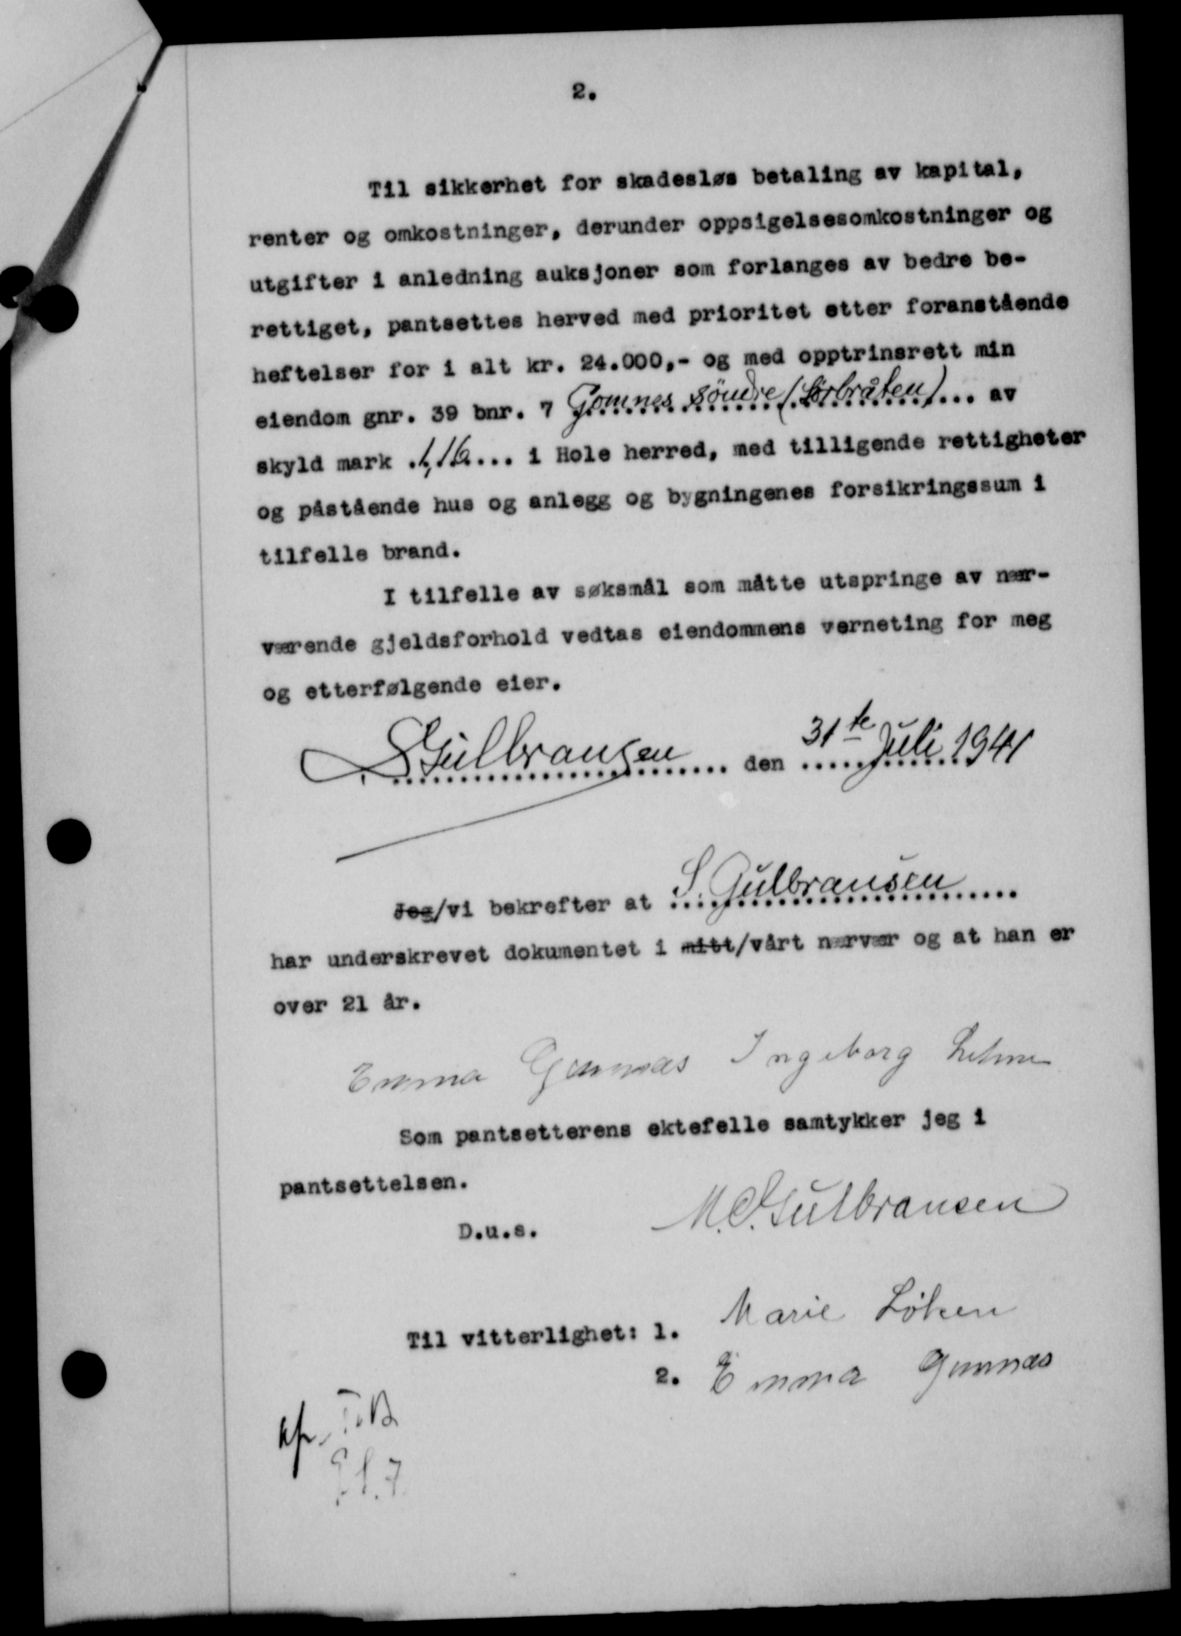 2.
Til sikkerhet for skadesløs betaling av kapital,
renter og omkostninger, derunder oppsigelsesomkostninger og
utgifter i anledning auksjoner som forlanges av bedre be-
rettiget, pantsettes herved med prioritet etter foranstående
heftelser for i alt kr. 24.000,- og med opptrinsrett min
eiendom gnr. 39 bnr. 7 Gomnes söndre (Sørbråten)... av
skyld mark .1,16... i Hole herred, med tilligende rettigheter
og påstående hus og anlegg og bygningenes forsikringssum i
tilfelle brand.
I tilfelle av søksmål som måtte utspringe av nær-
værende gjeldsforhold vedtas eiendommens verneting for meg
og etterfølgende eier.
S Gulbransen den 31te Juli 1941
Jeg/vi bekrefter at S. Gulbransen
har underskrevet dokumentet i mitt/vårt nærvær og at han er
over 21 år.
Emma Gomnæs Ingeborg
Som pantsetterens ektefelle samtykker jeg i
pantsettelsen.
D.u.s. M. Gulbransen
Til vitterlighet: 1. Marie Løken
2. Emma Gomnæs